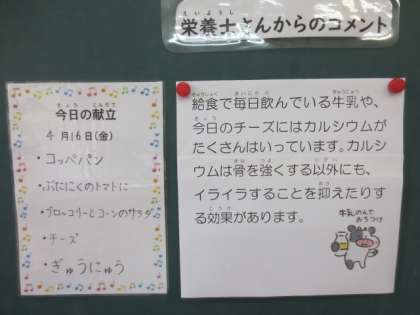 栄養士さんからのコメント
今日の献立
4月16日(金)
・コッペパン
・ぶたにくのトマトに
・ブロッコリーとコーンのサラダ
・チーズ
・ぎゅうにゅう
給食で毎日飲んでいる牛乳や、
今日のチーズにはカルシウムが
たくさんはいっています。カルシ
ウムは骨を強くする以外にも、
イライラすることを抑えたりす
る効果があります。
牛乳のんで
おちつけ